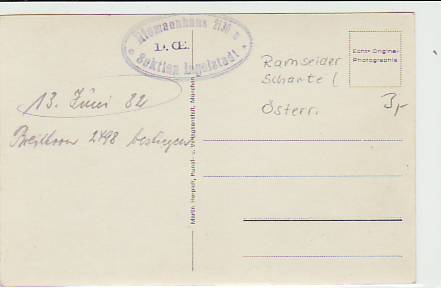 Riemannhaus 2130
D.Ö.
Sektion Ingolstadt
Echte Original
Photographie
Ramseider
Scharte (
Österr.
3,-
13. Juni 82
Breithorn 2498 bestiegen
Martin Herpich, Kunst- u. Verlagsanstalt, München